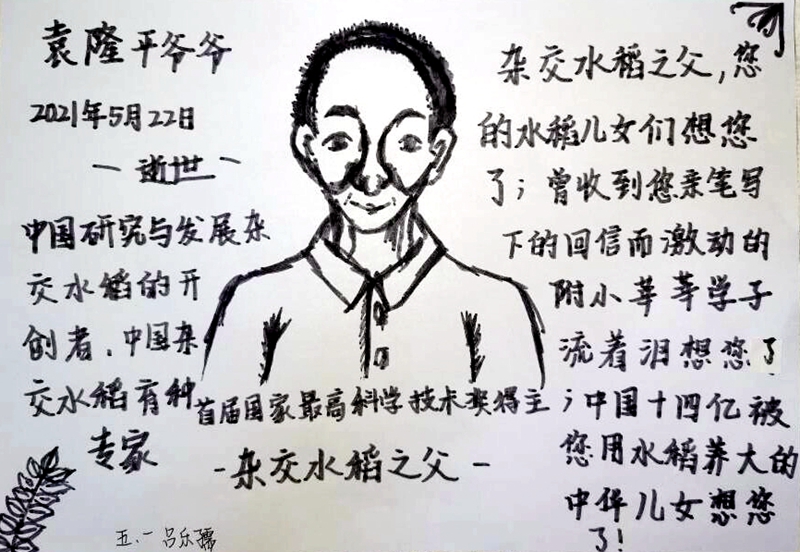 袁隆平爷爷
2021年5月22日
一逝世一
中国研究与发展杂
交水稻的开
创者、中国杂
交水稻育种
专家
首届国家最高科学技术奖得主
-杂交水稻之父-
杂交水稻之父,您
的水稻儿女们想您
了；曾收到您亲笔写
下的回信而激动的
附小莘莘学子
流着泪想您了
；中国十四亿被
您用水稻养大的
中华儿女想您
了!
五.一 吕乐孺